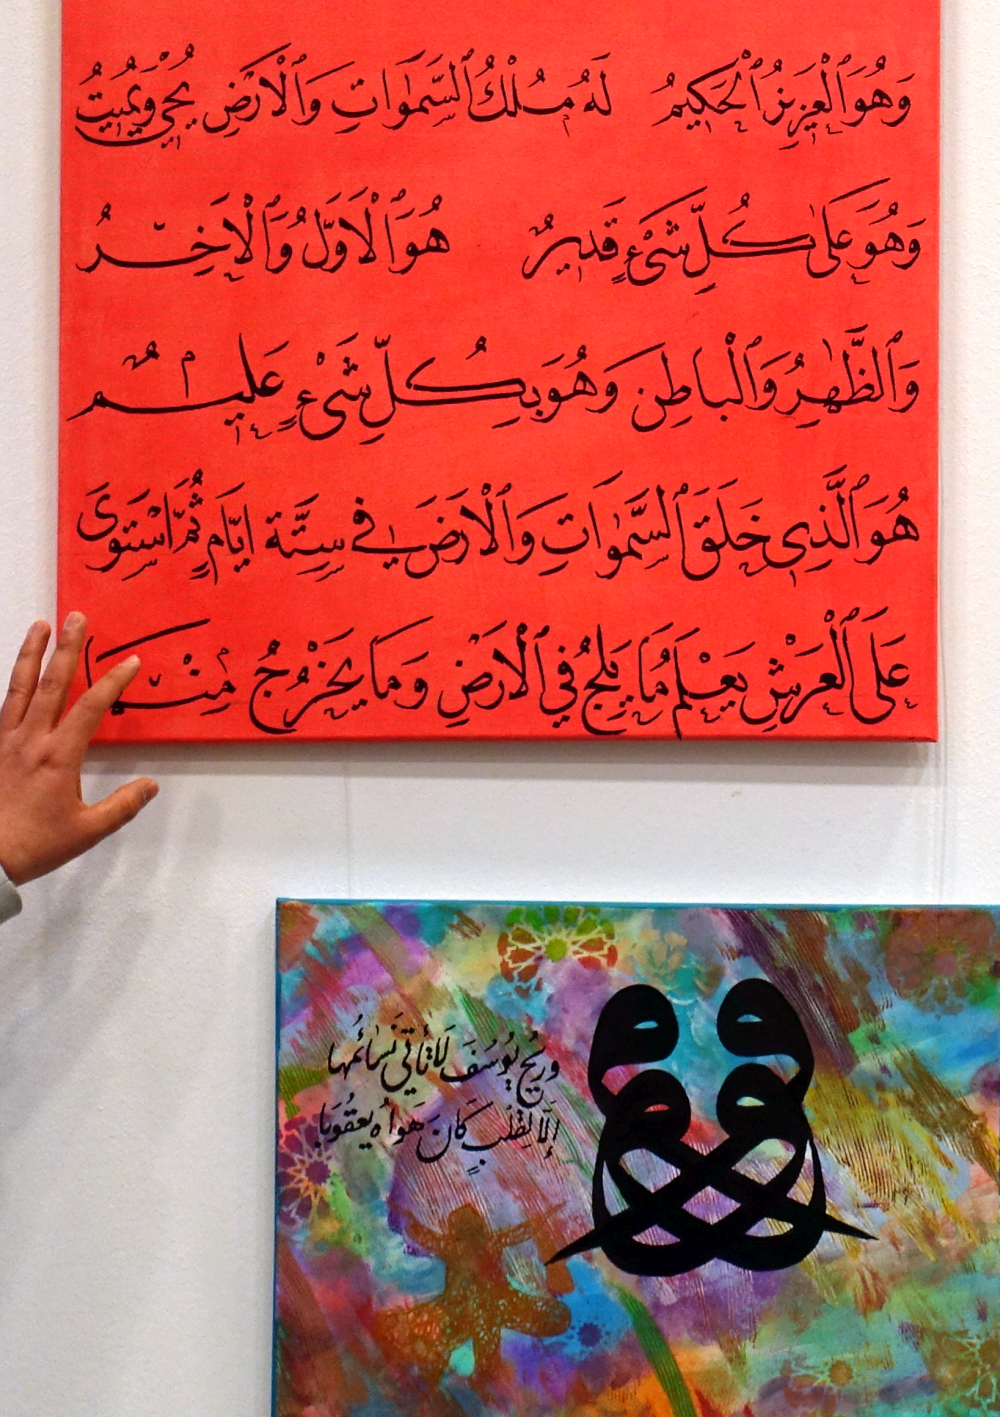 وَهُوَ ٱلْعَزِيزُ ٱلْحَكِيمُ لَهُ مُلْكُ ٱلسَّمَٰوَاتِ وَٱلْاَرْضِ يُحْيِ وَيُمِيتُ
وَهُوَ عَلَىٰ كُلِّ شَيْءٍ قَدِيرٌ هُوَ ٱلْاَوَّلُ وَٱلْاَخِرُ
وَٱلظَّٰهِرُ وَٱلْبَاطِنُ وَهُوَ بِكُلِّ شَيْءٍ عَلِيمٌ
هُوَ ٱلَّذِي خَلَقَ ٱلسَّمَٰوَاتِ وَٱلْاَرْضَ فِي سِتَّةِ اَيَّامٍ ثُمَّ اسْتَوَى
عَلَى ٱلْعَرْشِ يَعْلَمُ مَا يَلِجُ فِي ٱلْاَرْضِ وَمَا يَخْرُجُ مِنْهَا
وريح يُوسُفَ لَا تأتي نَسَائمُها
إلّا لِقلبٍ كَانَ هَواهُ يعقُوبا